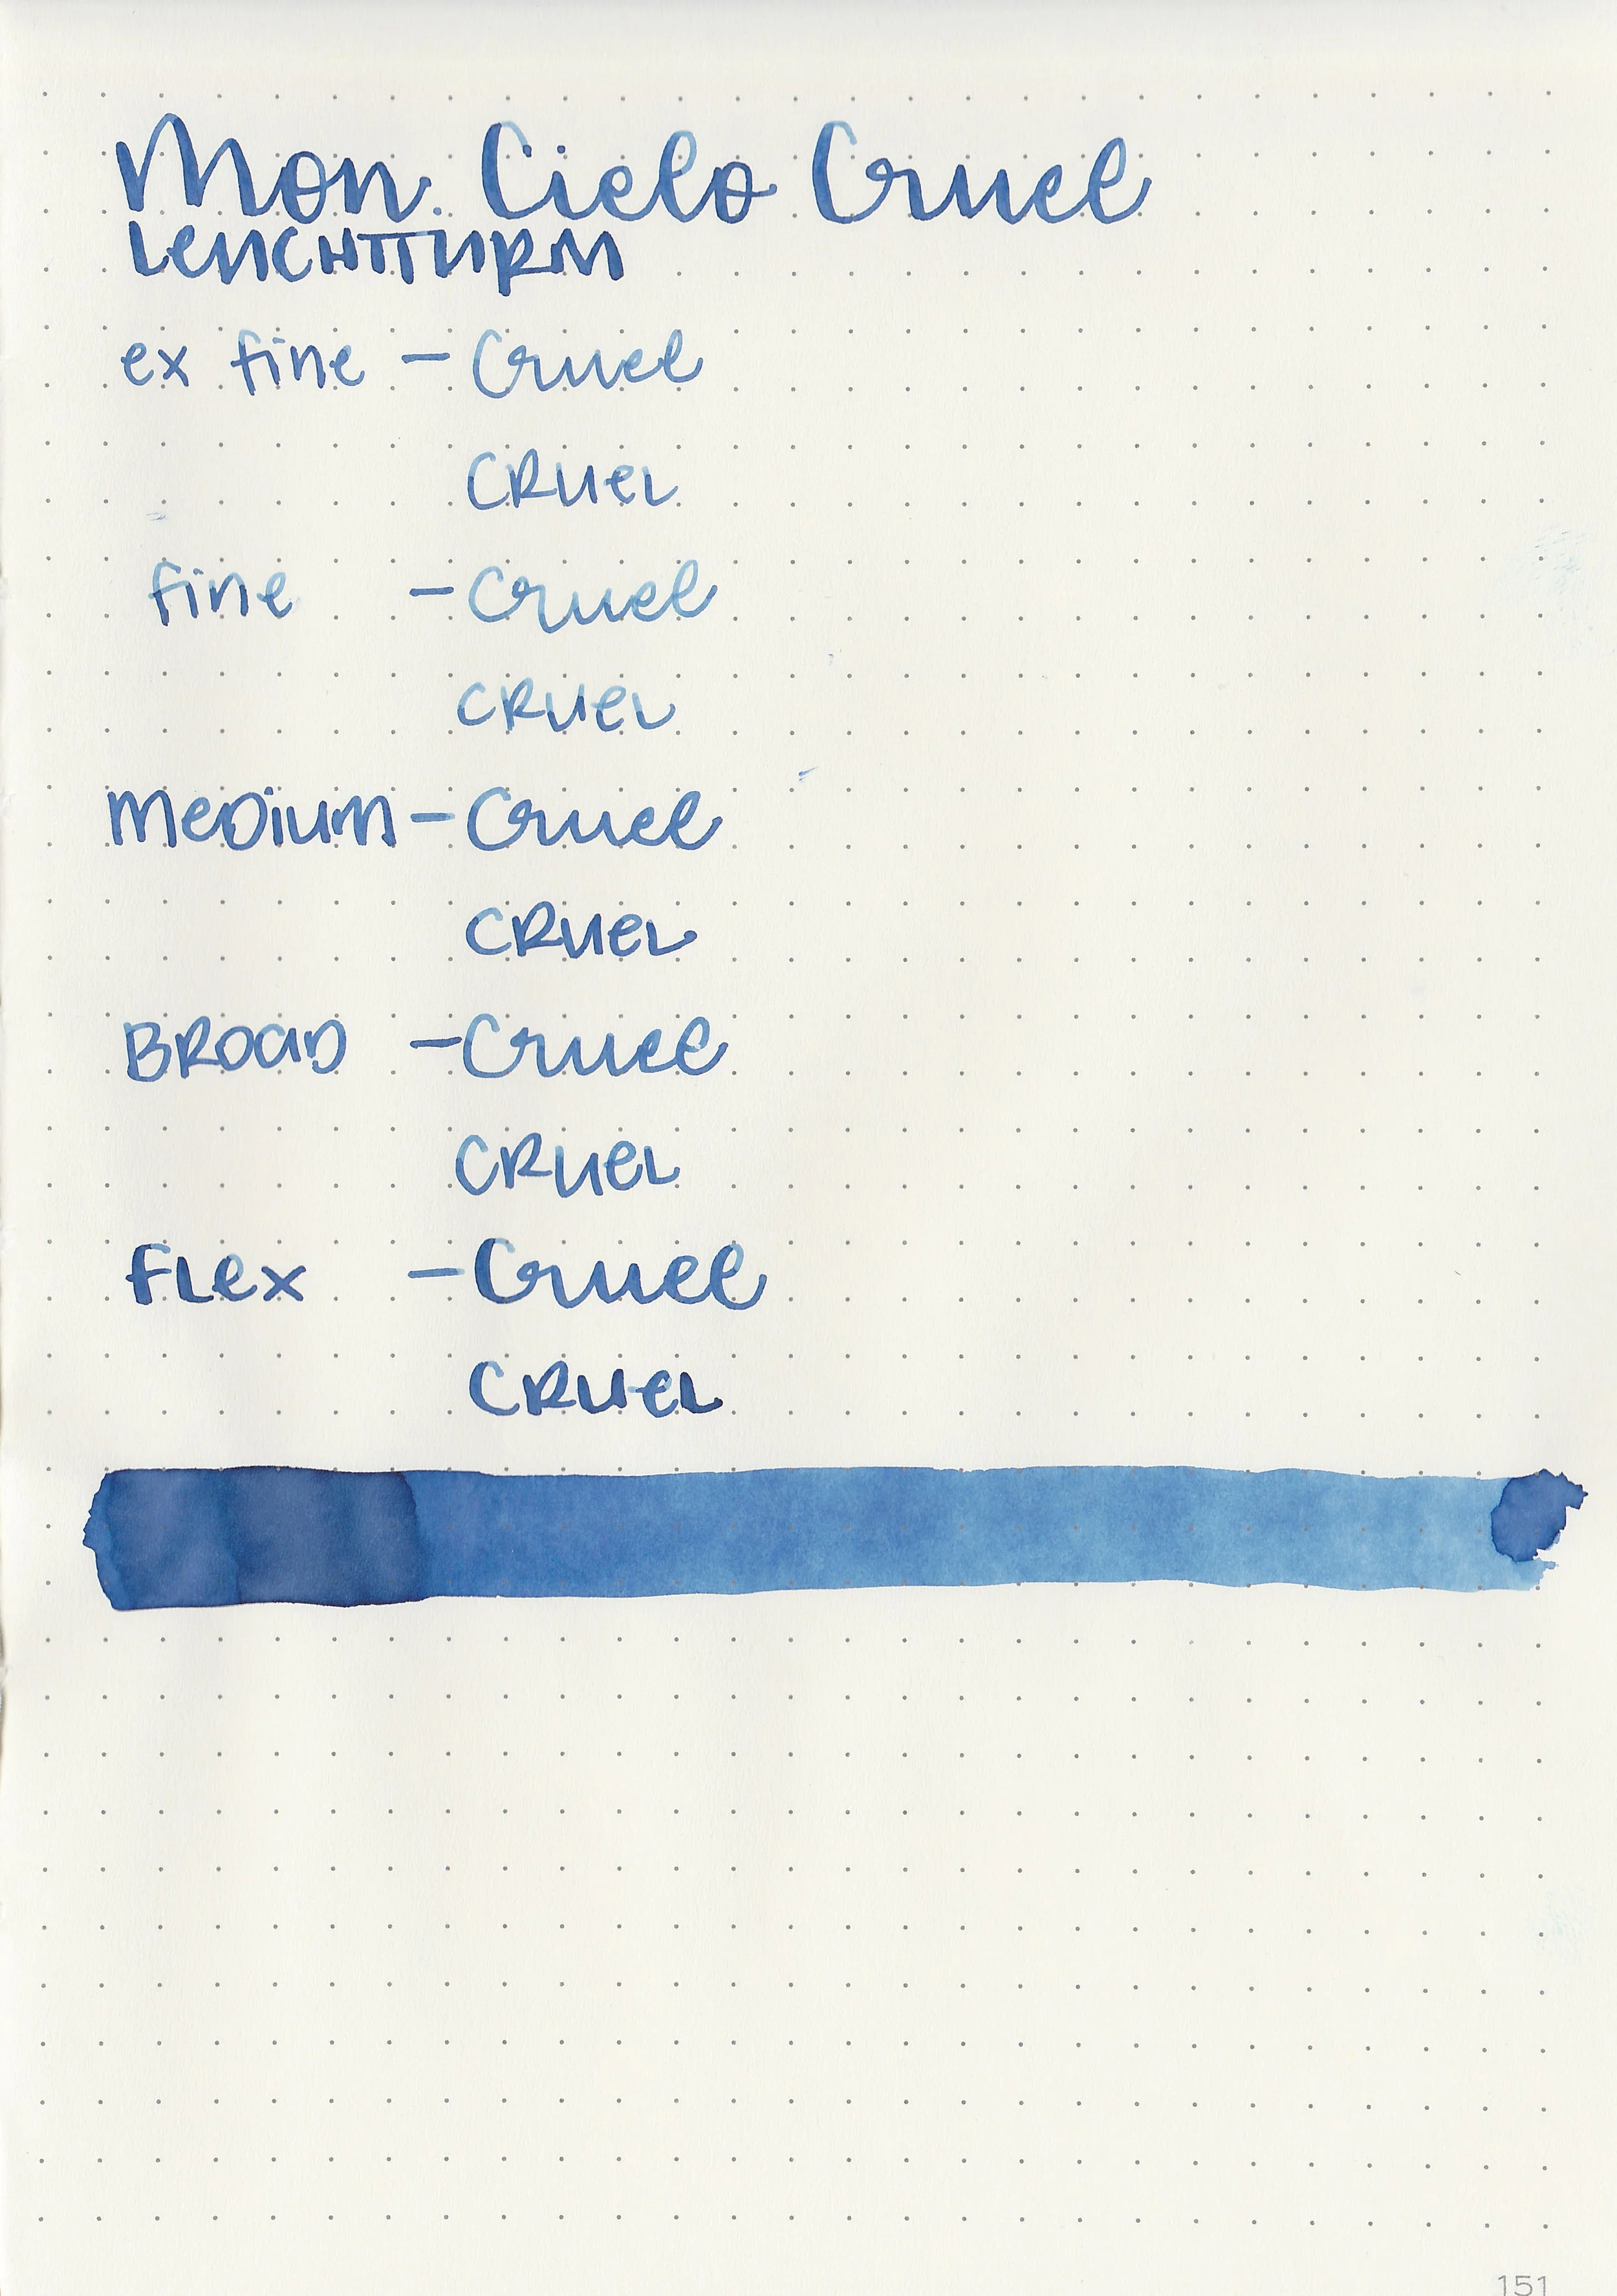 Mon. Cielo Cruel
LEUCHTTURM
ex fine - Cruel
CRUEL
fine - Cruel
CRUEL
MEDIUM - Cruel
CRUEL
BROAD - Cruel
CRUEL
FLEX - Cruel
CRUEL
151